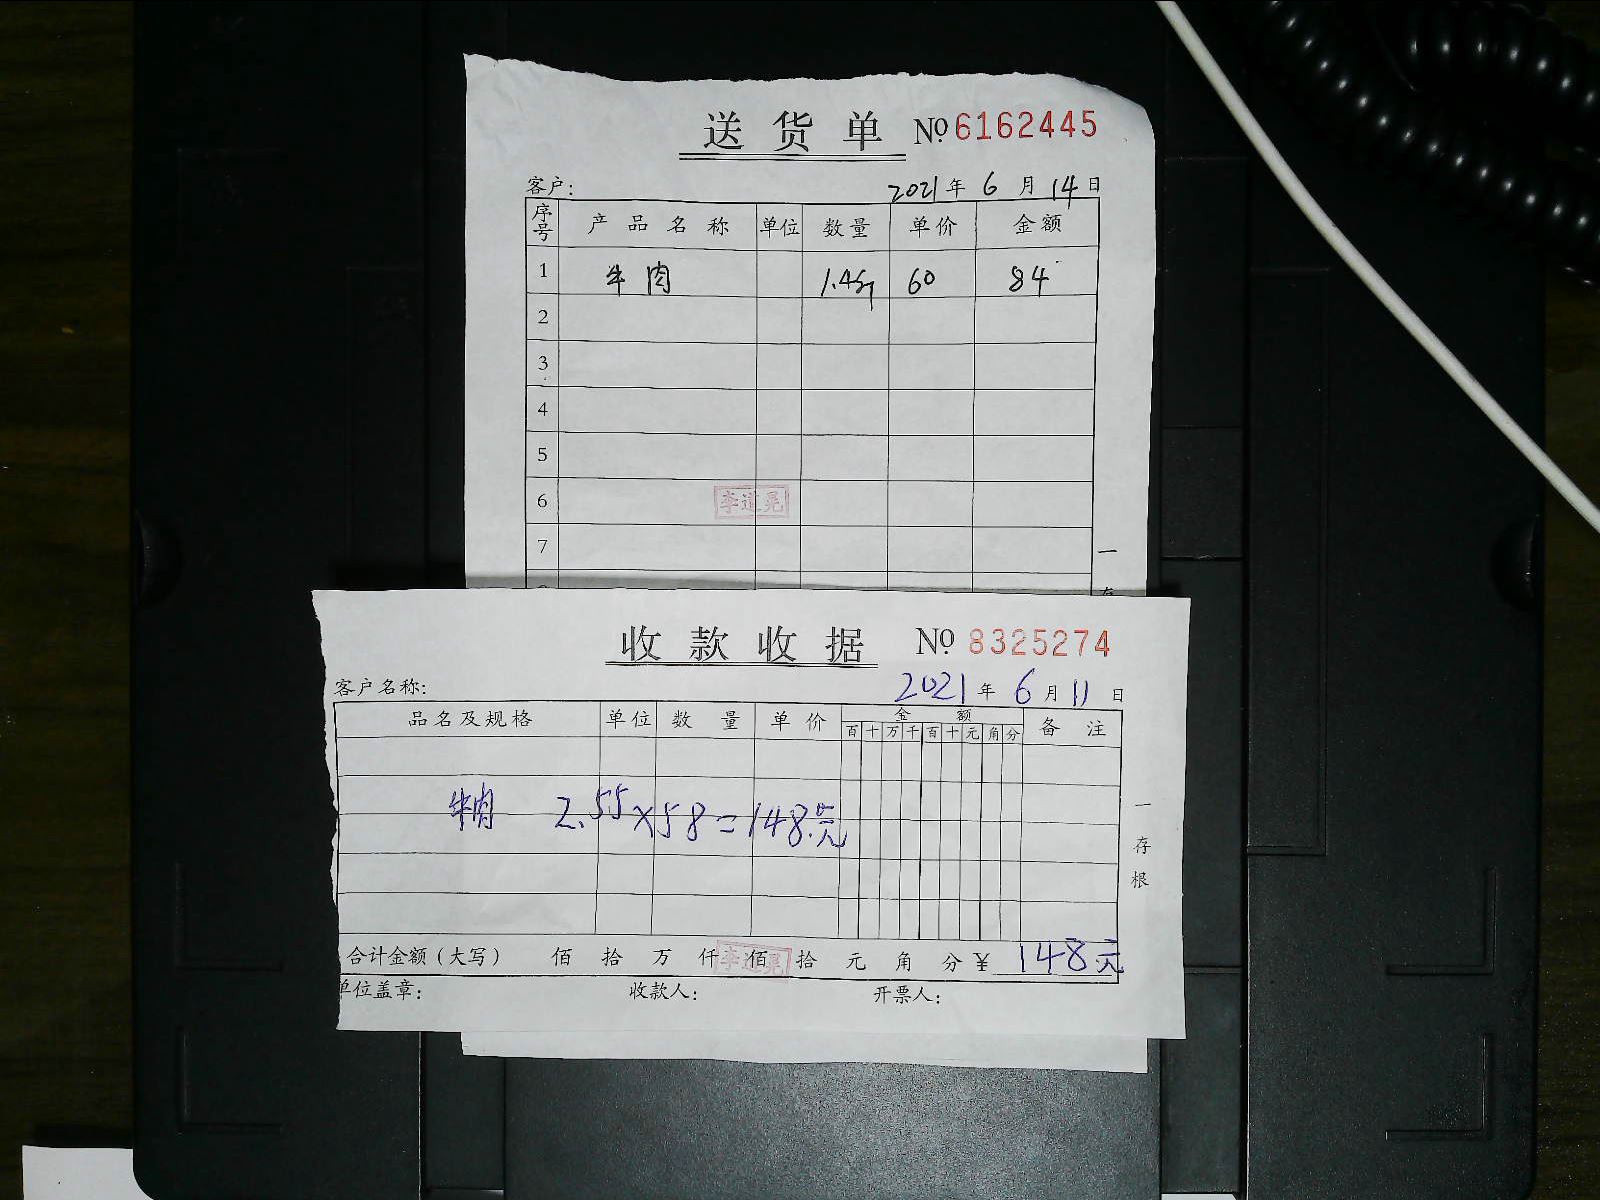 送货单 № 6162445
客户: 2021年6月14日
序号 产品名称 单位 数量 单价 金额
1 牛肉 1.4斤 60 84
2
3
4
5
6 李道晃
7
一
收款收据 № 8325274
客户名称: 2021年6月11日
品名及规格 单位 数量 单价 金额 备注
百十万千百十元角分
牛肉 2.55×58=148元
一存根
合计金额(大写) 佰 拾 万 仟 佰 拾 元 角 分 ¥ 148元
李道晃
单位盖章: 收款人: 开票人: